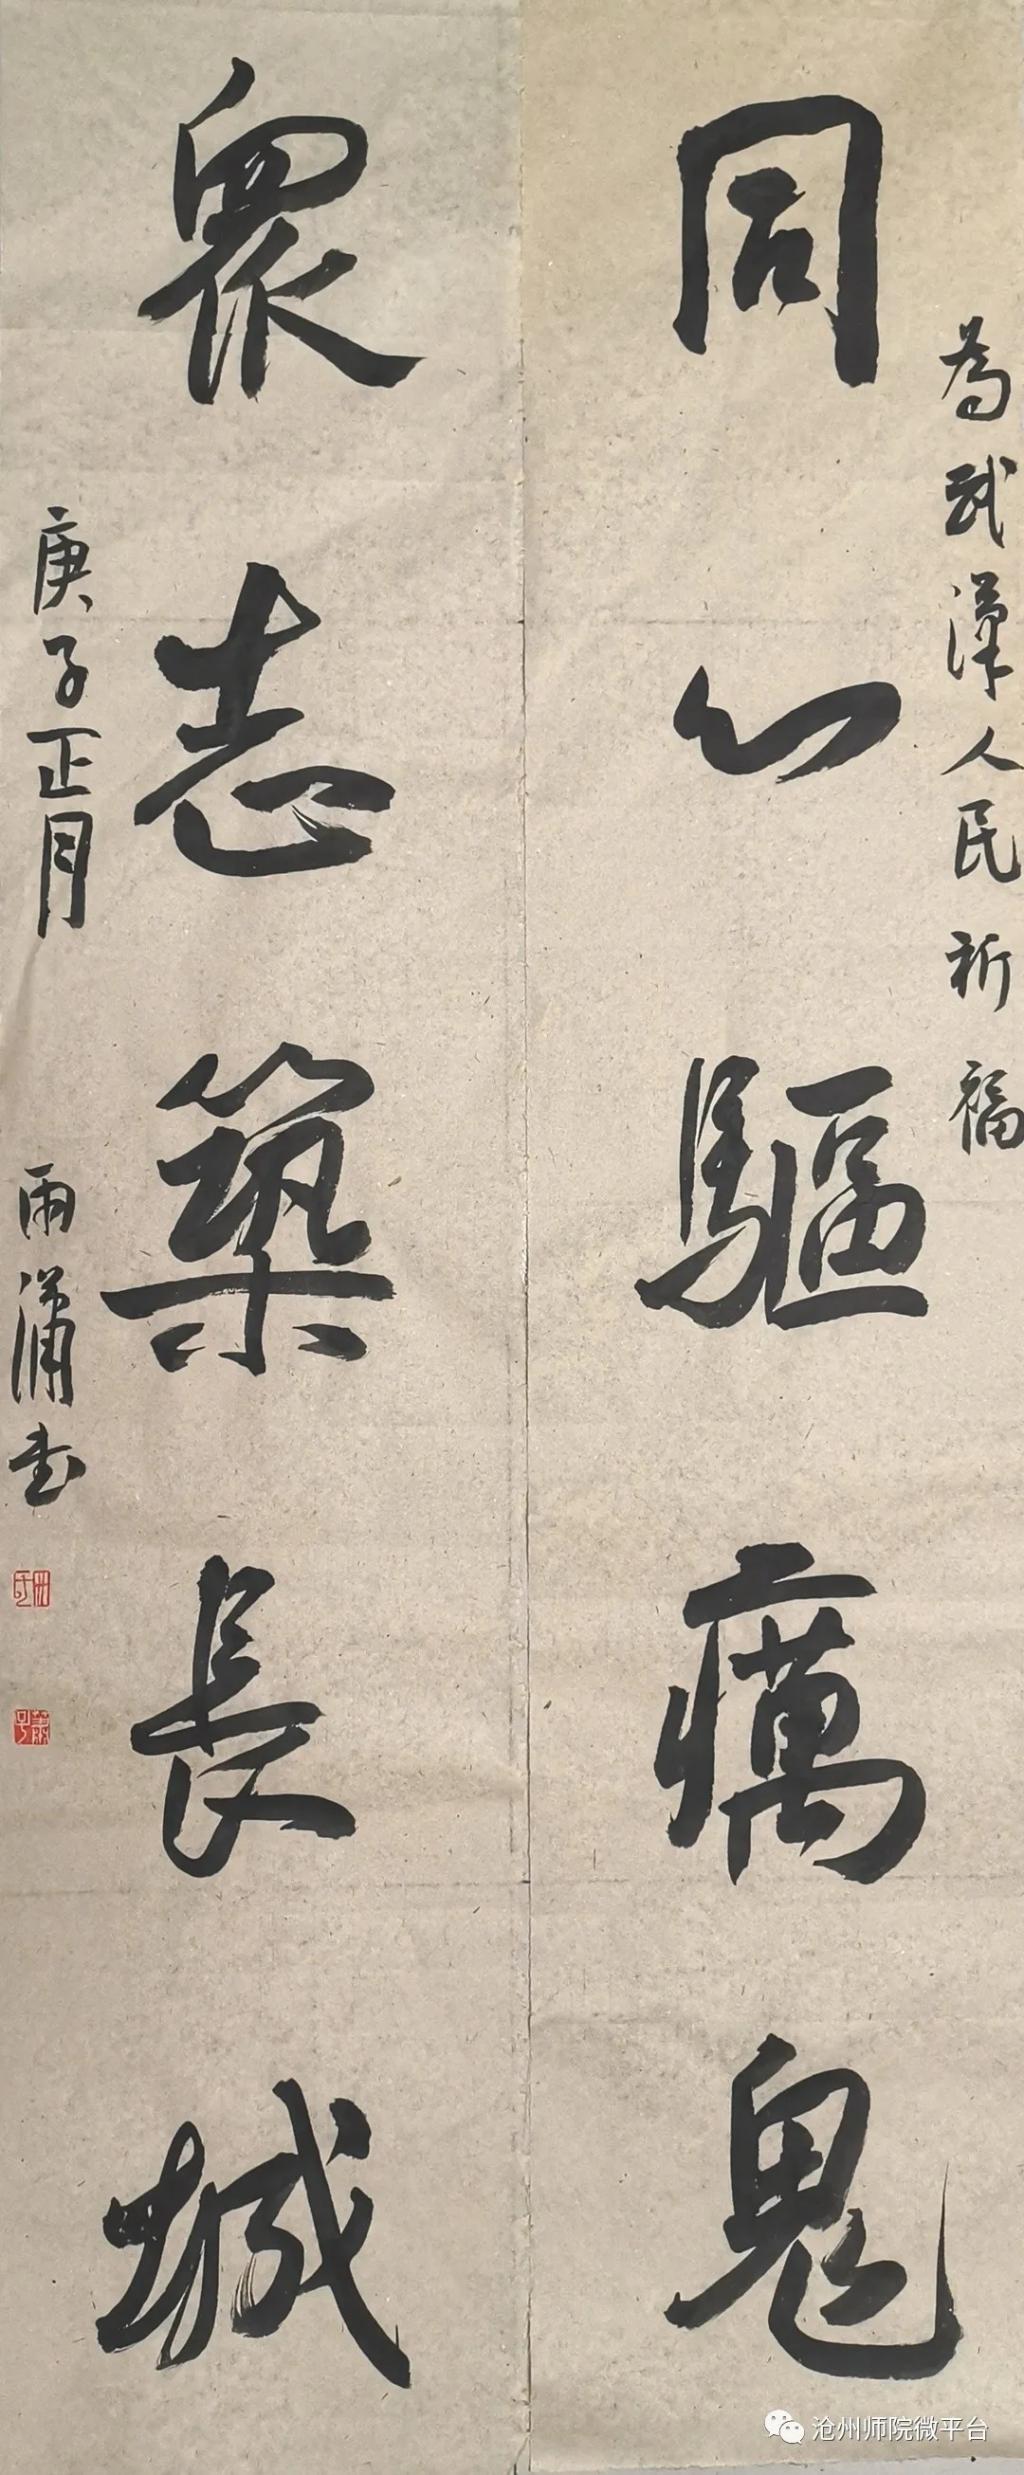 為武漢人民祈福
同心驅癘鬼
眾志築長城
庚子正月
雨瀟书
沧州师院微平台